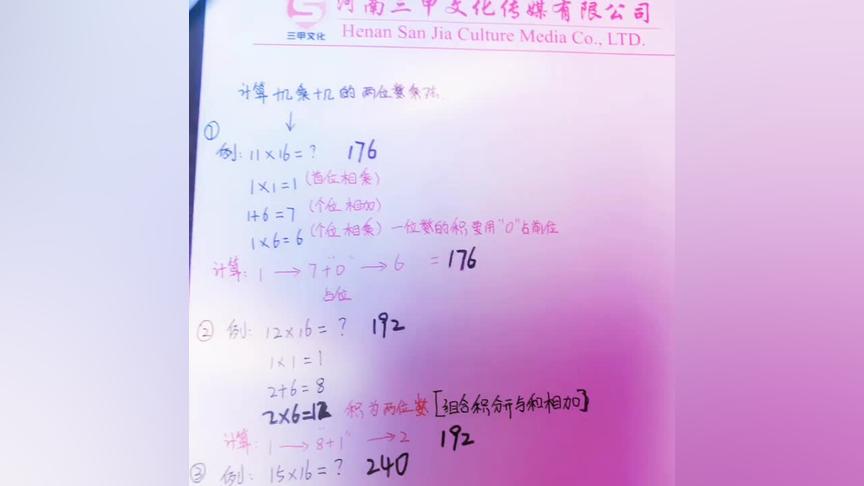 河南三甲文化传媒有限公司
三甲文化
Henan San Jia Culture Media Co., LTD.
计算十几乘十几的两位数乘法
↓
① 例: 11×16=? 176
1×1=1 (首位相乘)
1+6=7 (个位相加)
1×6=6 (个位相乘) 一位数的积,要用"0"占前位
计算: 1 → 7+"0" → 6 =176
占位
② 例: 12×16=? 192
1×1=1
2+6=8
2×6=12 积为两位数[组合积分开与和相加]
计算: 1 → 8+1" → 2 192
③ 例: 15×16=? 240